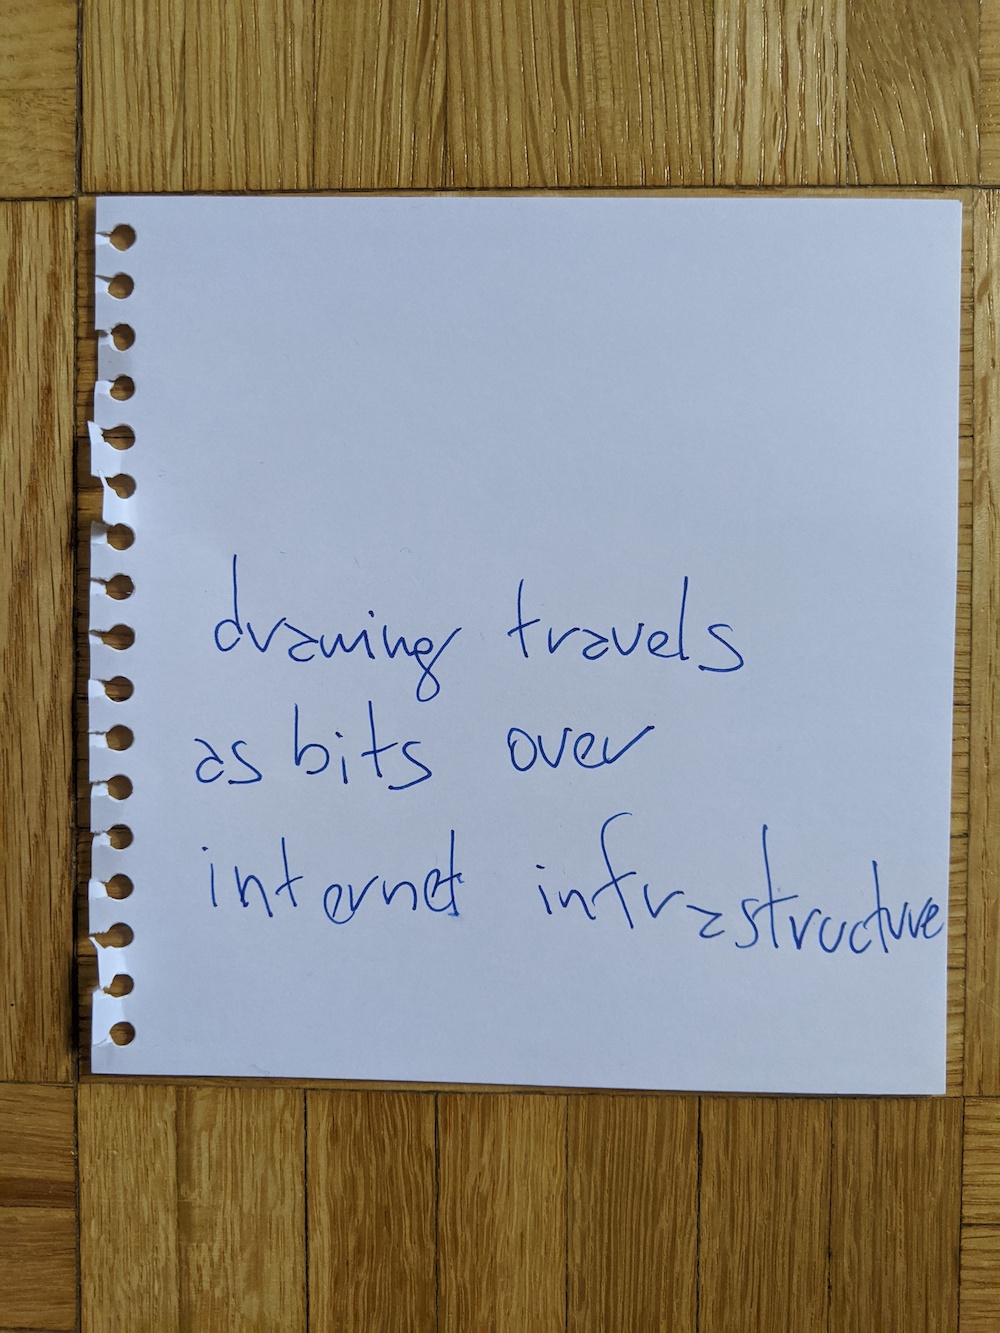 drawing travels
as bits over
internet infrastructure